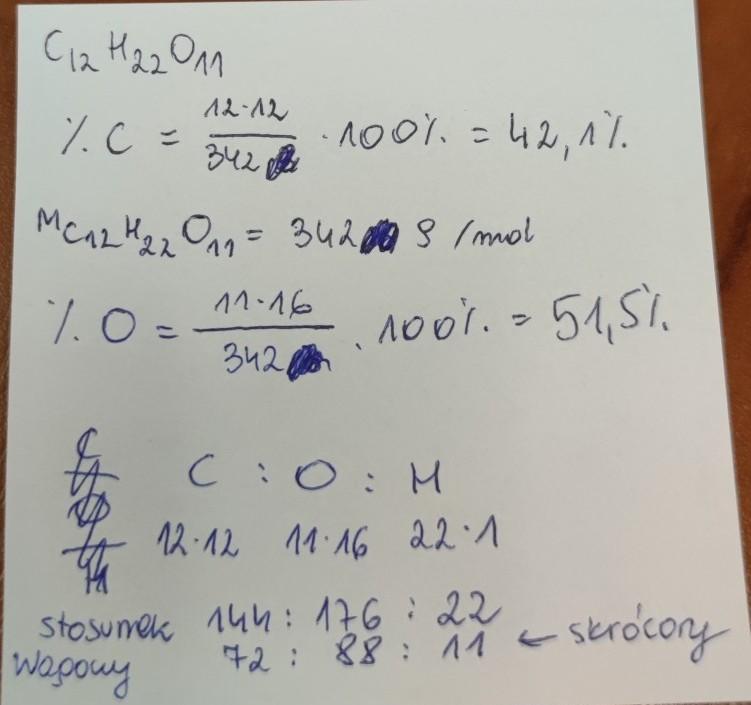 C₁₂H₂₂O₁₁
% C = 12·12 / 342 · 100% = 42,1%
M C₁₂H₂₂O₁₁ = 342 g/mol
% O = 11·16 / 342 · 100% = 51,5%
C : O : H
12·12 11·16 22·1
stosunek 144 : 176 : 22
wagowy 72 : 88 : 11 ← skrócony